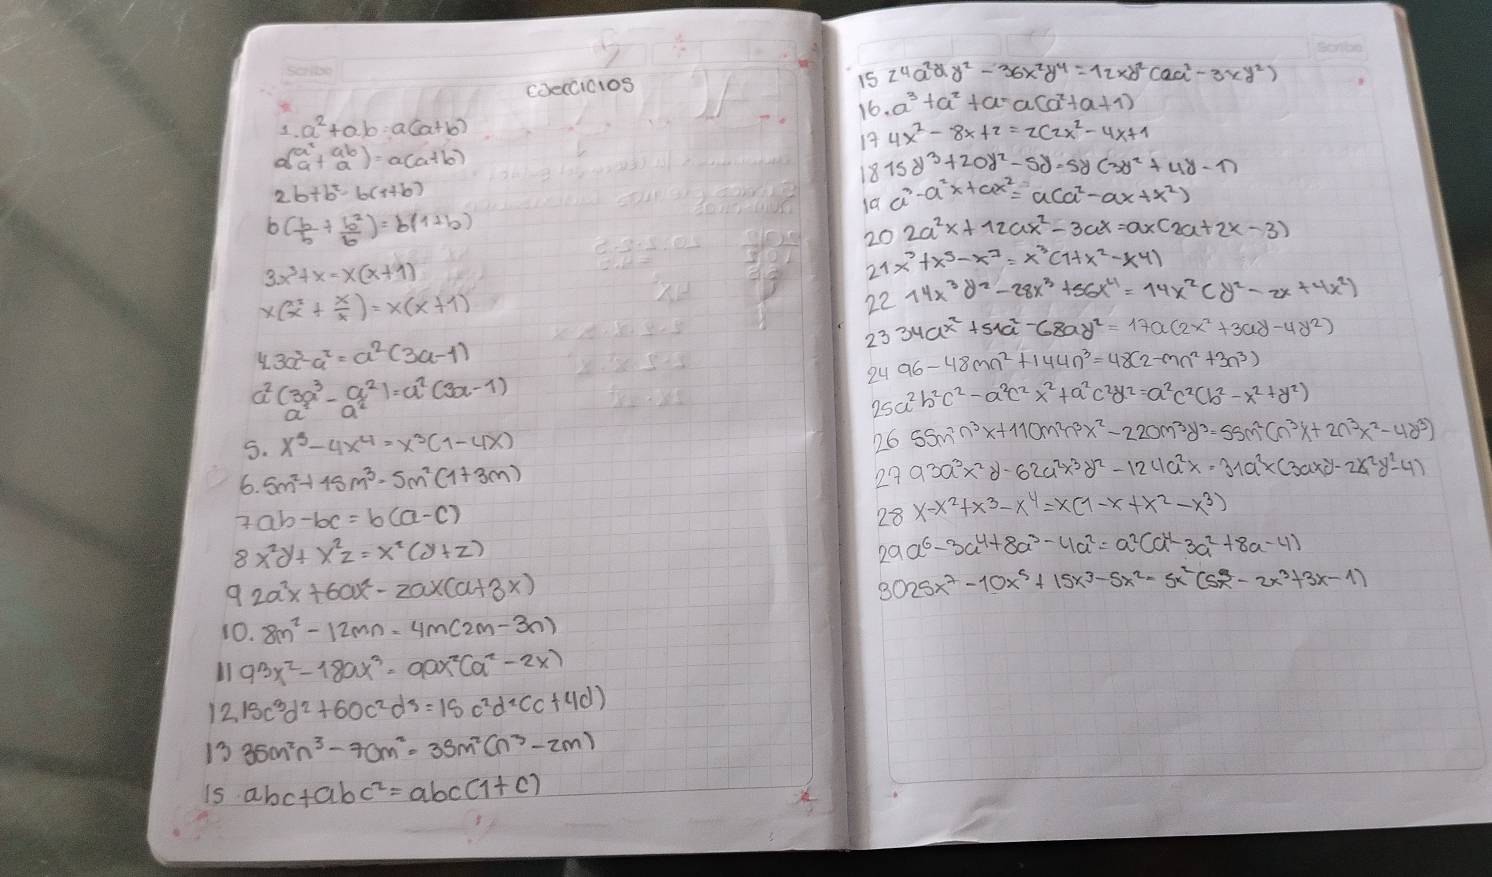 Scribe
ejercicios
1. a² + ab = a(a+b)
a(a²/a + ab/a) = a(a+b)
2 b+b² = b(1+b)
b(b/b + b²/b) = b(1+b)
3x²+x = x(x+1)
x(x²/x + x/x) = x(x+1)
4. 3a³-a² = a²(3a-1)
a²(3a³/a² - a²/a²) = a²(3a-1)
5. x³-4x⁴ = x³(1-4x)
6. 5m²+15m³ = 5m²(1+3m)
7 ab-bc = b(a-c)
8 x²y + x²z = x²(y+z)
9 2a²x + 6ax² = 2ax(a+3x)
10. 8m² - 12mn = 4m(2m-3n)
11 9³x² - 18ax³ = 9ax²(a²-2x)
12. 15c³d² + 60c²d³ = 15c²d²(c+4d)
13 35m²n³ - 70m² = 35m²(n³-2m)
15 abc+abc² = abc(1+c)
Scribe
15 24a²xy² - 36x²y⁴ = 12xy²(2a²-3xy²)
16. a³+a²+a = a(a²+a+1)
17 4x² - 8x+2 = 2(2x²-4x+1
18 15y³+20y²-5y = 5y(3y²+4y-1)
19 a³-a²x+ax² = a(a²-ax+x²)
20 2a²x+12ax²-3ax = ax(2a+2x-3)
21 x³+x⁵-x⁷ = x³(1+x²-x⁴)
22 14x²y²-28x³+56x⁴ = 14x²(y²-2x+4x²)
23 34ax²+51a²-68ay² = 17a(2x²+3ay-4y²)
24 96-48mn²+144n³ = 48(2-mn²+3n³)
25 a²b²c²-a²c²x²+a²c²y² = a²c²(b²-x²+y²)
26 55m²n³x+110m²n³x²-220m²y³ = 55m²(n³x+2n³x²-4y³)
27 93a³x²y-62a²x³y²-124a²x = 31a²x(3axy-2x²y²-4)
28 x-x²+x³-x⁴ = x(1-x+x²-x³)
29 a⁶-3a⁴+8a³-4a² = a²(a⁴-3a²+8a-4)
30 25x⁷-10x⁵+15x³-5x² = 5x²(5x⁵-2x³+3x-1)